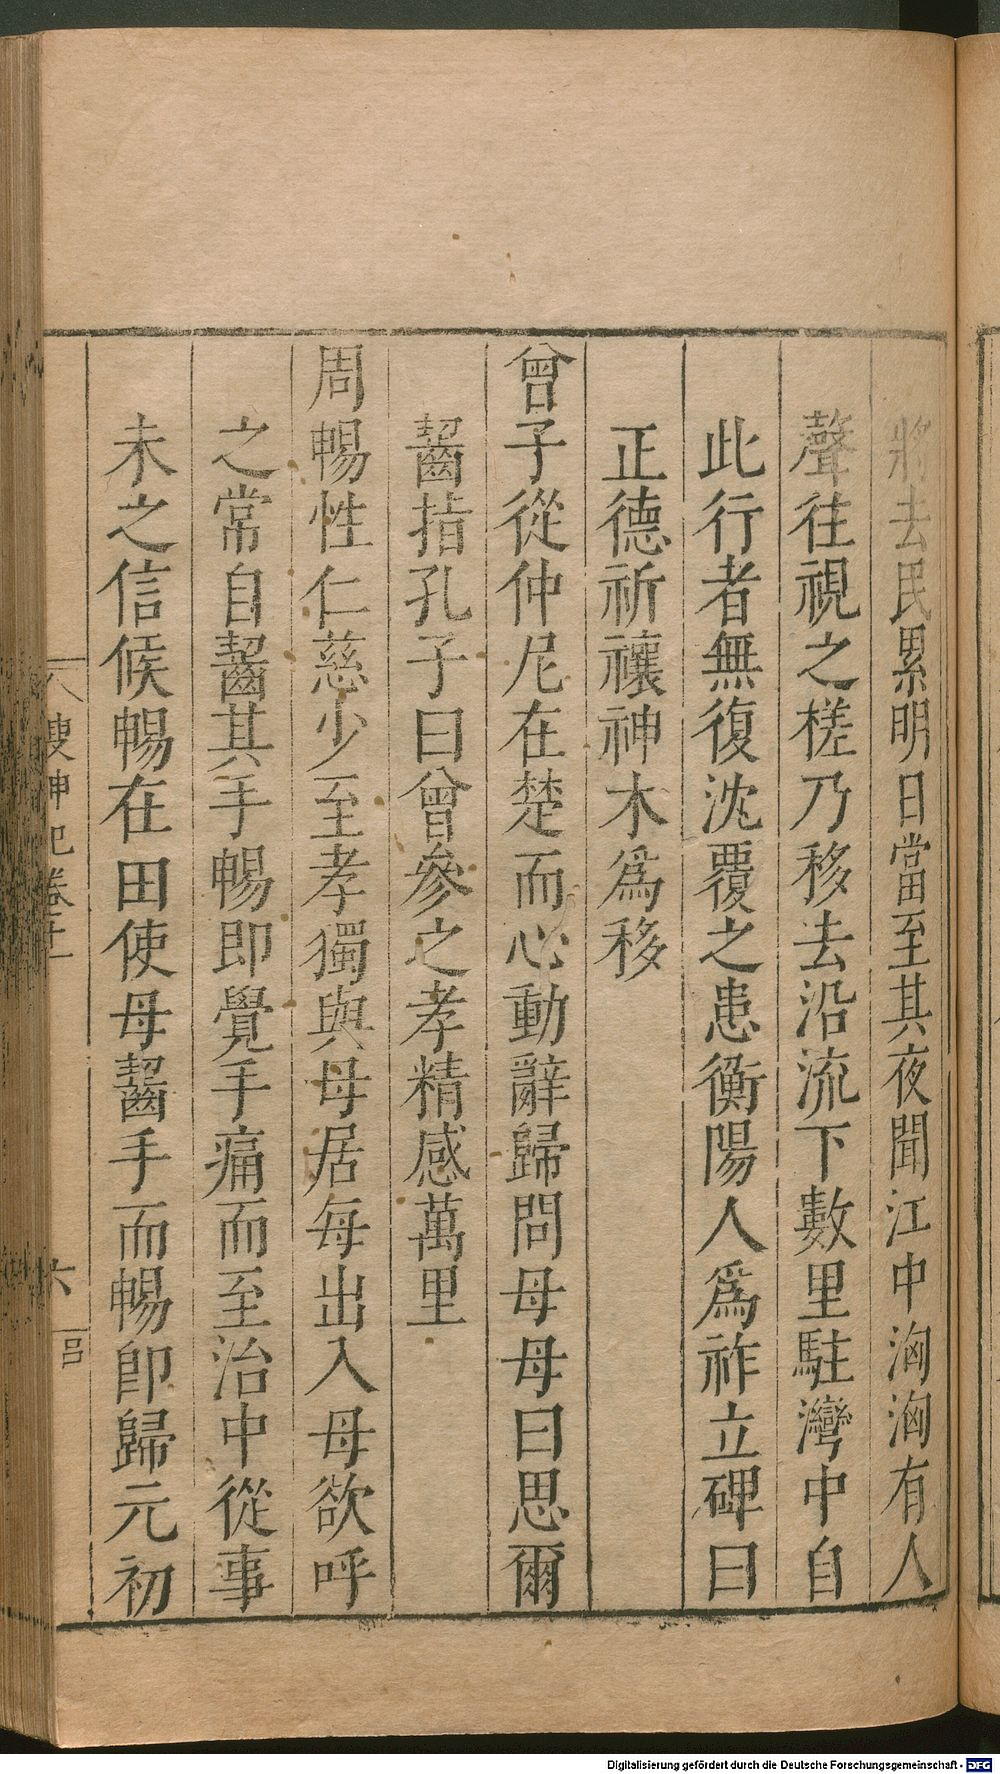 將去民累明日當至其夜聞江中洶洶有人
聲往視之槎乃移去沿流下數里駐灣中自
此行者無復沈覆之患衡陽人爲祚立碑曰
正德祈禳神木爲移
曾子從仲尼在楚而心動辭歸問母母曰思爾
齧指孔子曰曾參之孝精感萬里
周暢性仁慈少至孝獨與母居每出入母欲呼
之常自齧其手暢即覺手痛而至治中從事
未之信候暢在田使母齧手而暢即歸元初
搜神記卷十一
六
Digitalisierung gefördert durch die Deutsche Forschungsgemeinschaft - DFG